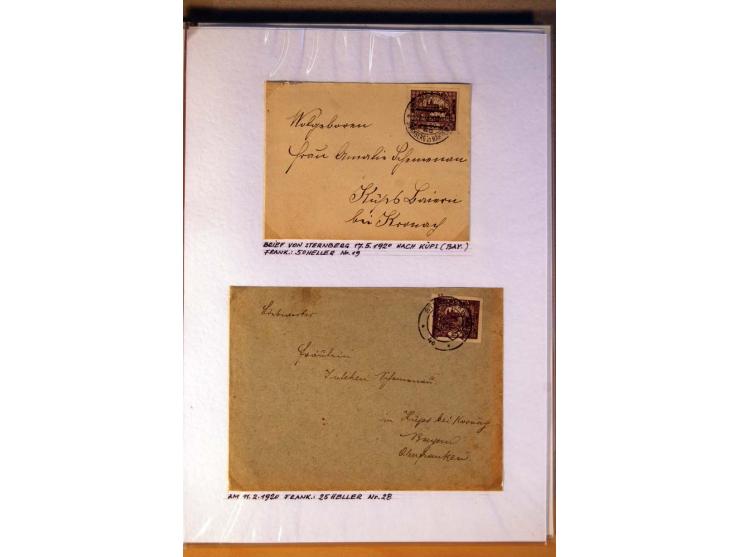 Wolgeboren
Frau Amalie Schemenau
Küps Baiern
bei Kronach
BRIEF VON STERNBERG 17.5.1920 NACH KÜPS (BAY.)
FRANK.: 50 HELLER Nr. 19
Fräulein
Schemenau
in Küps bei Kronach
Bayern
Oberfranken.
AM 11.2.1920 FRANK.: 25 HELLER Nr. 28